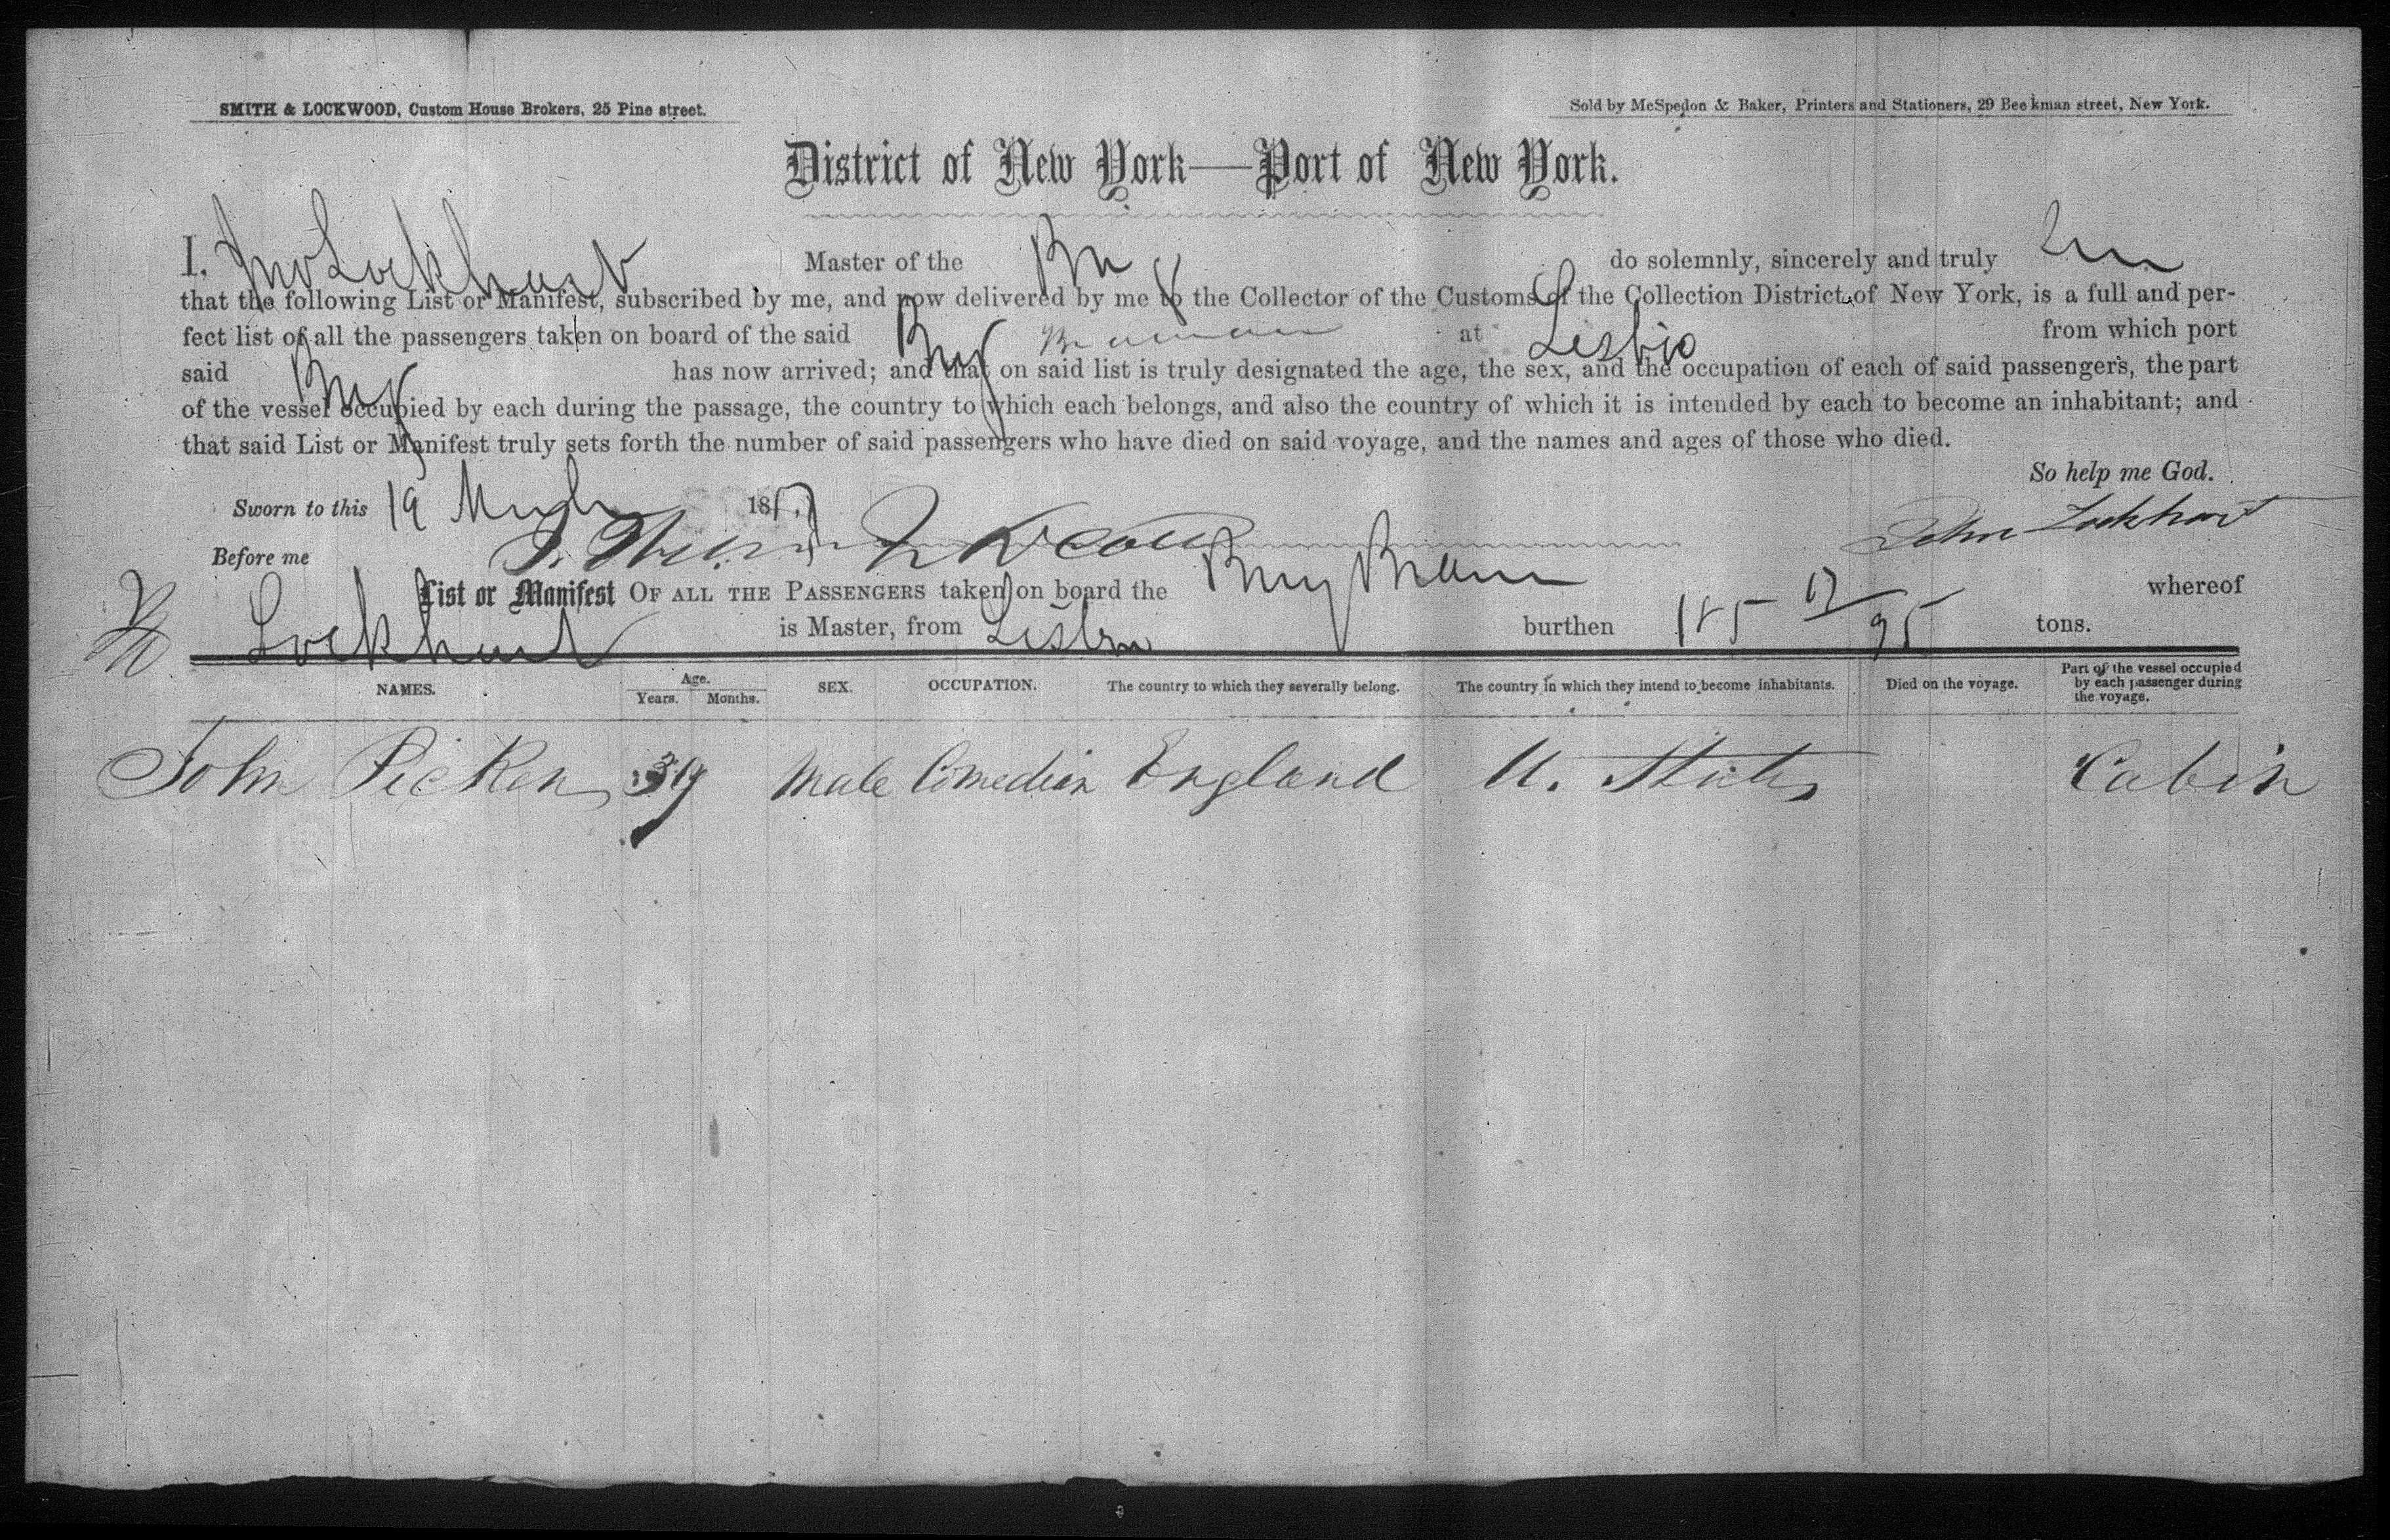 SMITH & LOCKWOOD, Custom House Brokers, 25 Pine street.
Sold by McSpedon & Baker, Printers and Stationers, 29 Beekman street, New York.
District of New York—Port of New York.
I, Jno Lockhart Master of the Brig do solemnly, sincerely and truly
that the following List or Manifest, subscribed by me, and now delivered by me to the Collector of the Customs of the Collection District of New York, is a full and per-
fect list of all the passengers taken on board of the said Brig at from which port
said Brig has now arrived; and that on said list is truly designated the age, the sex, and the occupation of each of said passengers, the part
of the vessel occupied by each during the passage, the country to which each belongs, and also the country of which it is intended by each to become an inhabitant; and
that said List or Manifest truly sets forth the number of said passengers who have died on said voyage, and the names and ages of those who died.
So help me God.
Sworn to this 19 March 1857
John Lockhart
Before me
List or Manifest OF ALL THE PASSENGERS taken on board the Brig whereof
Lockhart is Master, from Lisbon burthen 185 tons.
NAMES. Age. Years. Months. SEX. OCCUPATION. The country to which they severally belong. The country in which they intend to become inhabitants. Died on the voyage. Part of the vessel occupied by each passenger during the voyage.
John Picken Male Comedian England U. States Cabin